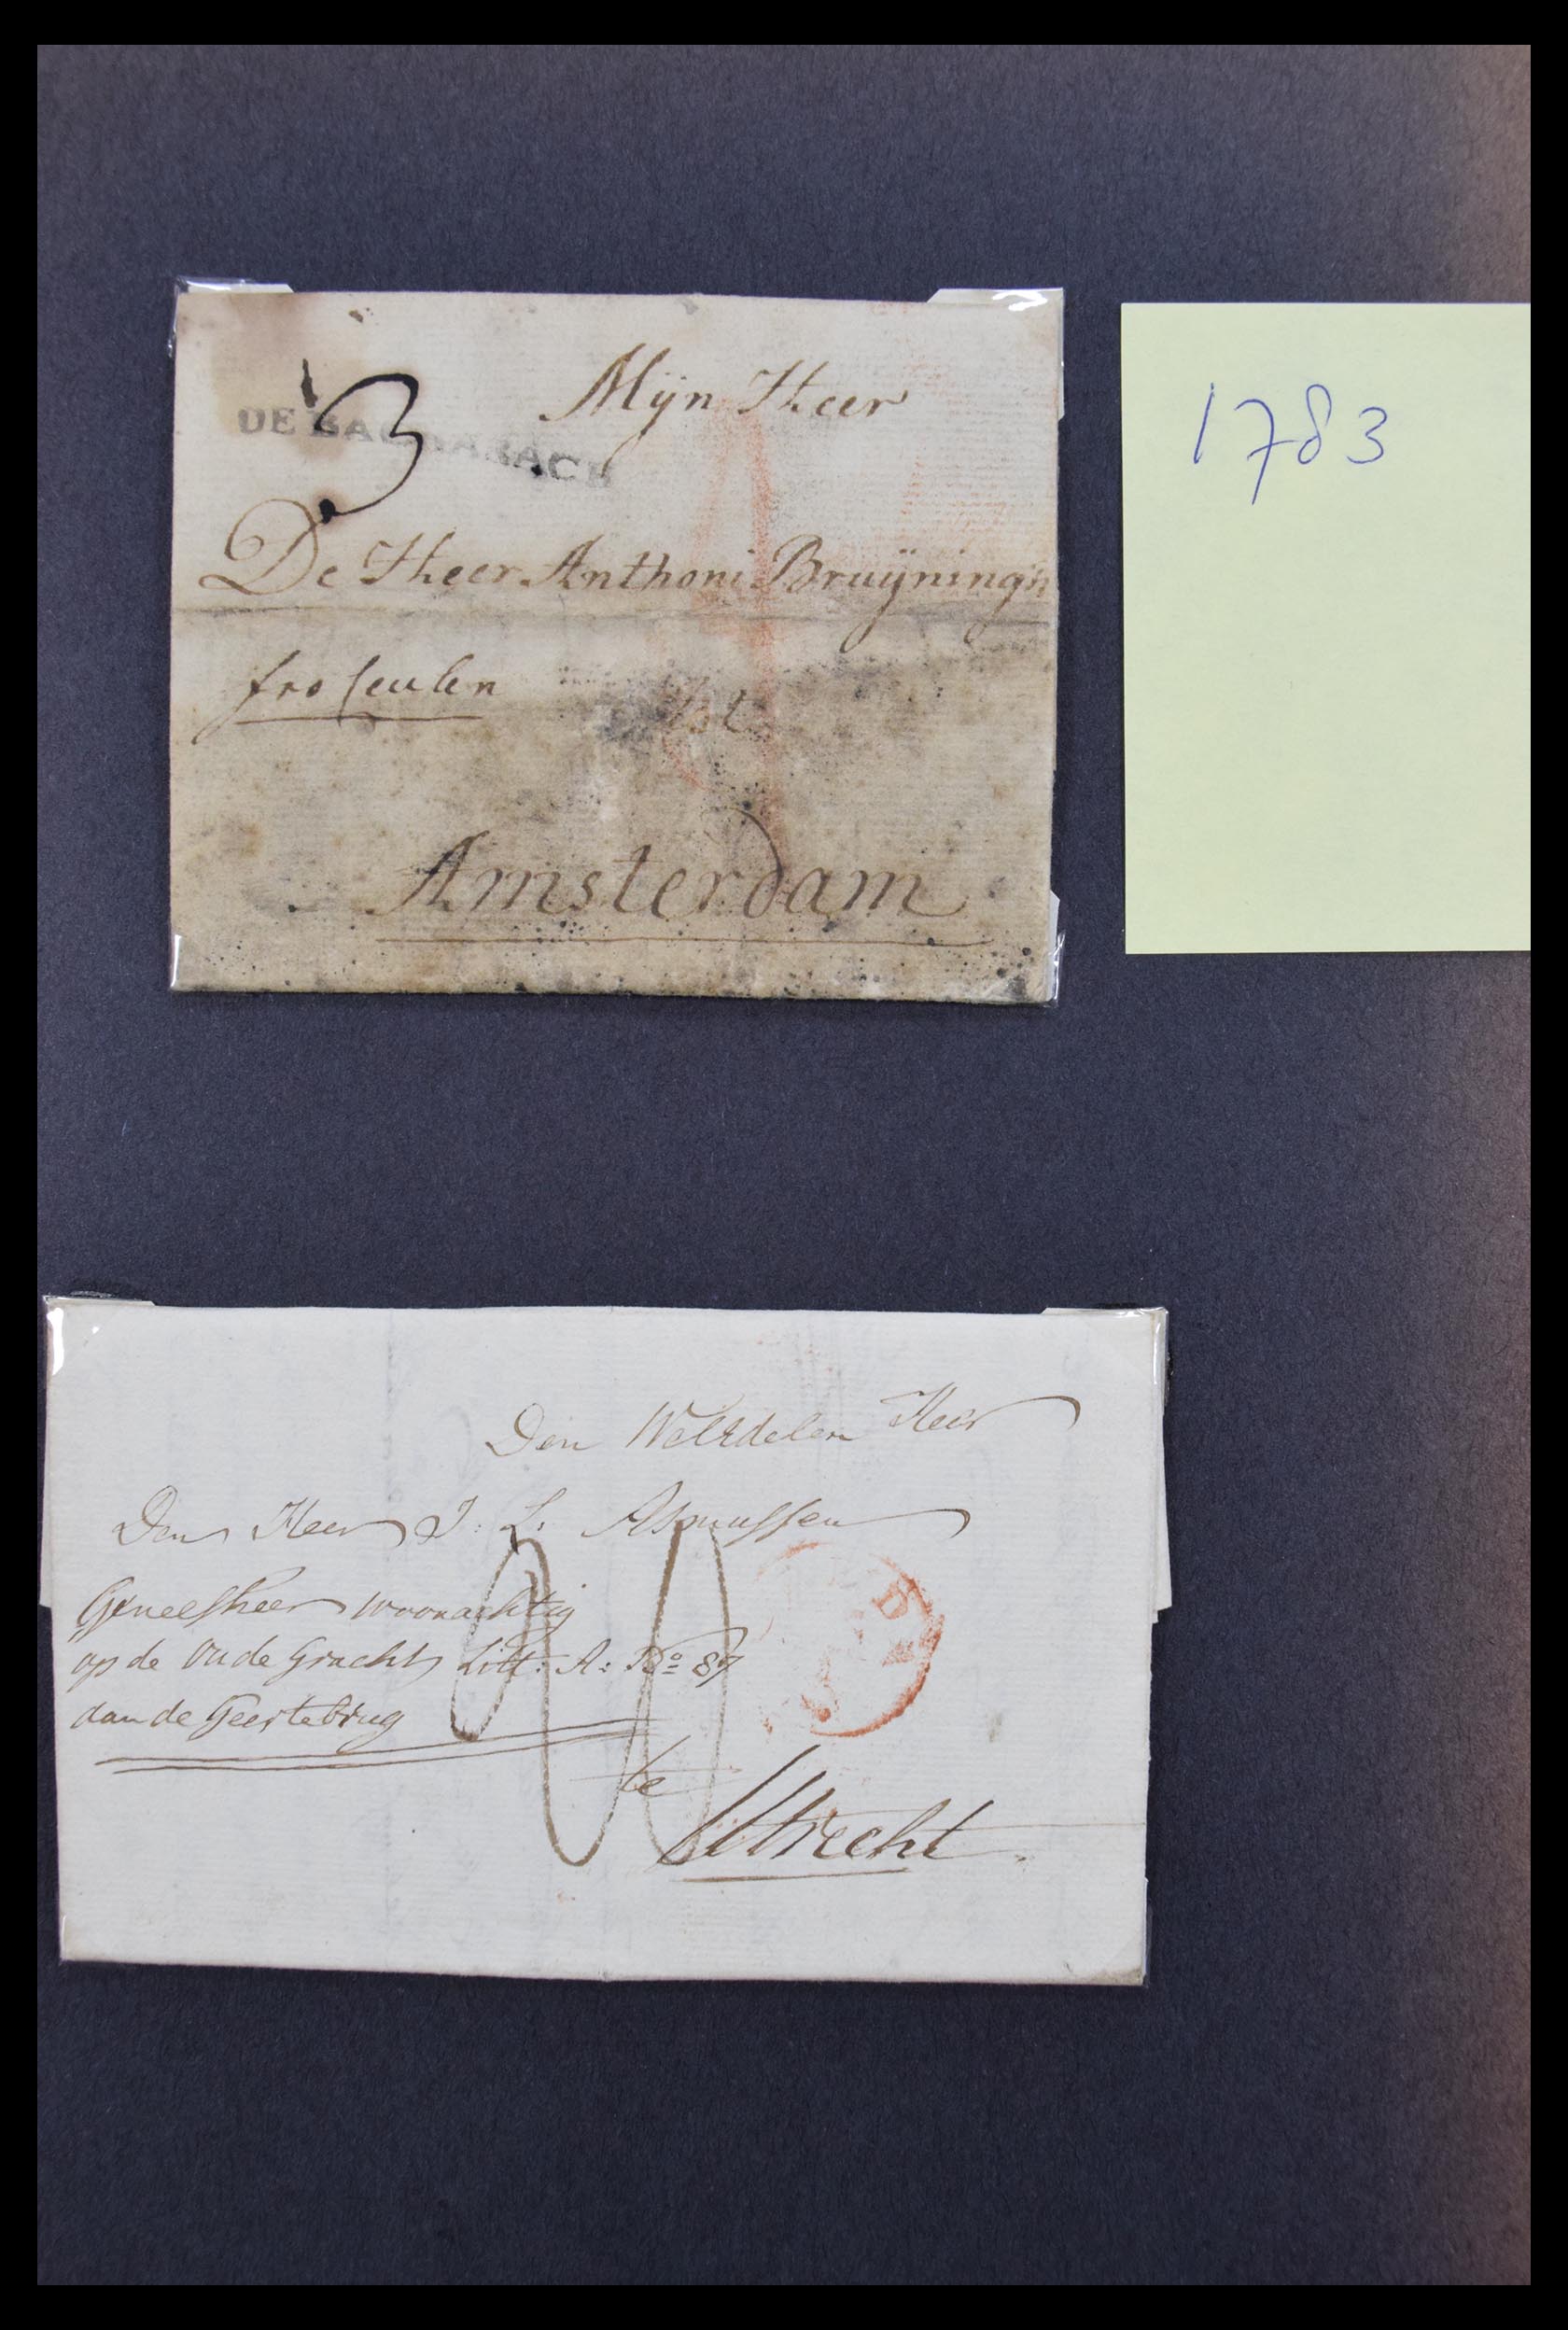 Mijn Heer
3
DE BACHARACH
De Heer Anthoni Bruijningh
fro Ceulen
Amsterdam
1783
Den WelEdelen Heer
Den Heer J: L: Asmussen
Geneesheer woonachtig
op de Oude Gracht Litt: A: No 87
aan de Geertebrug
te
Utrecht